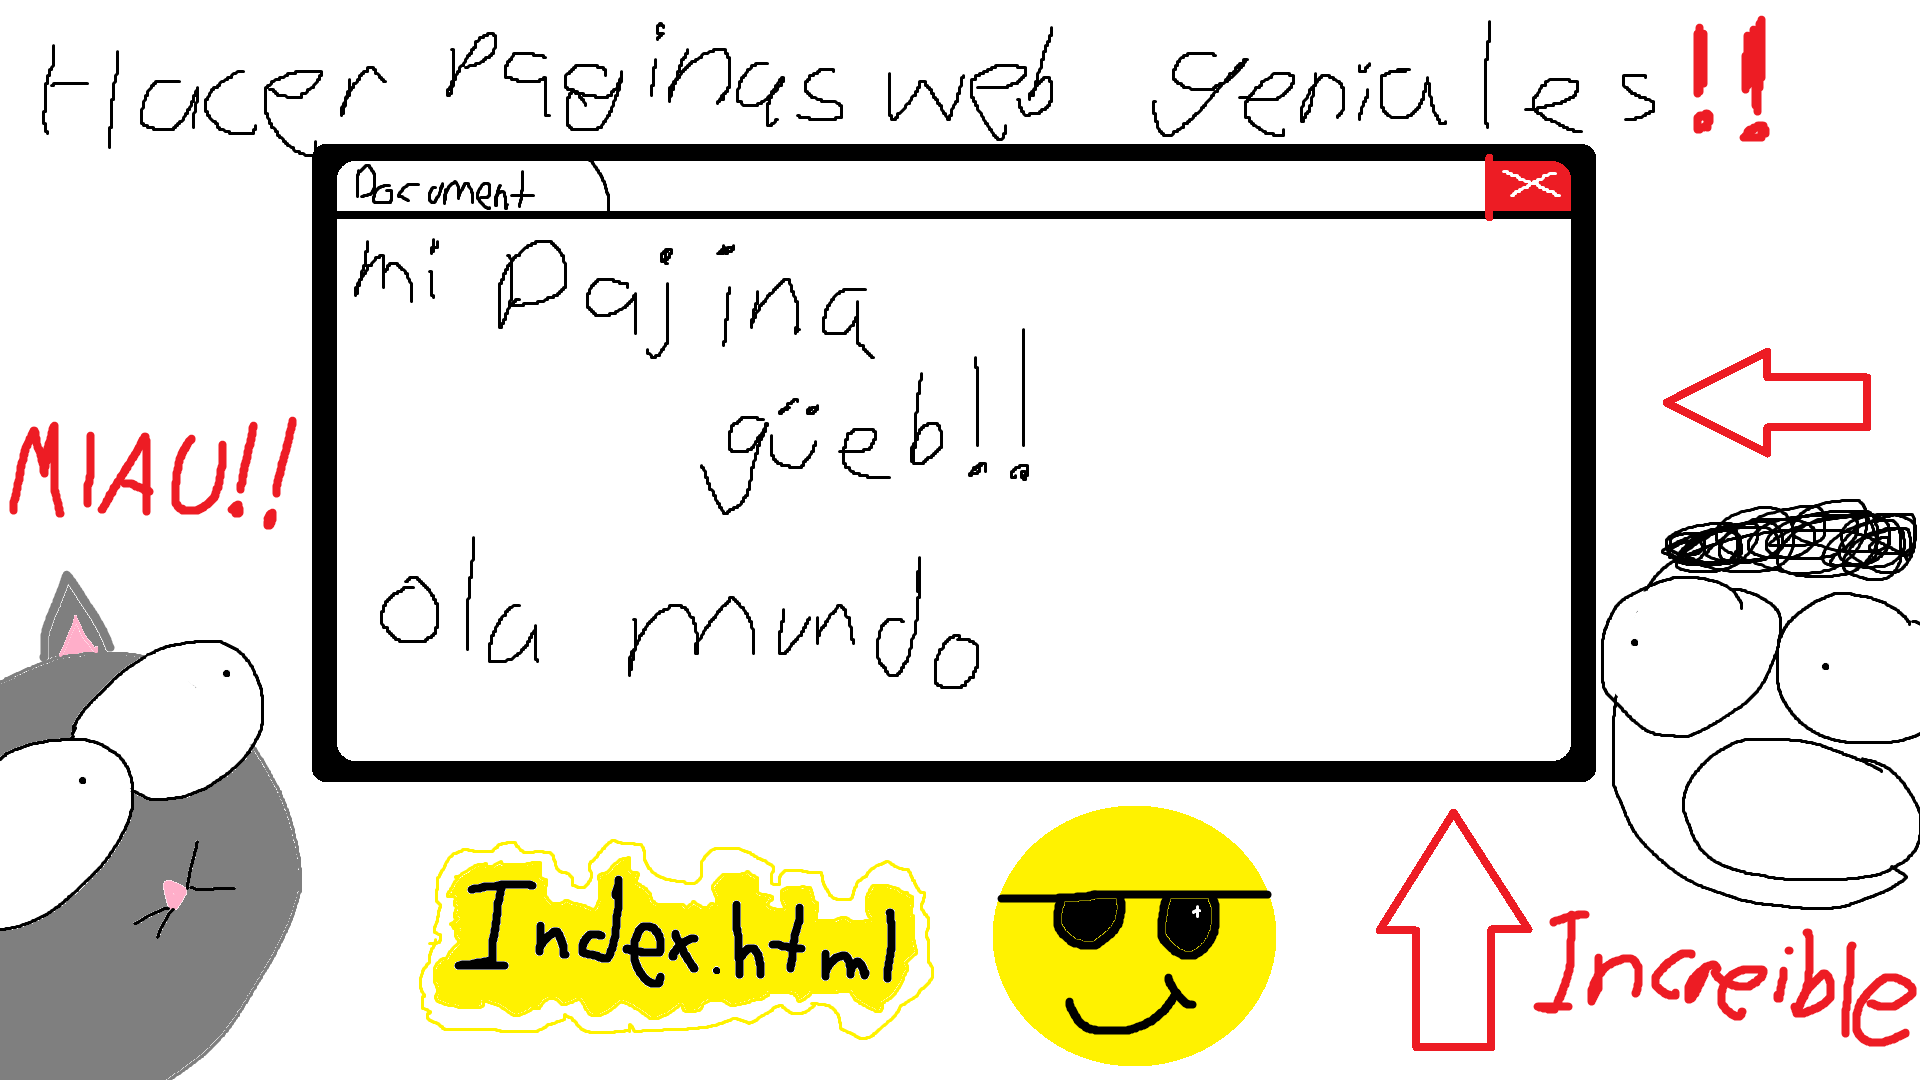 Hacer Paginas web geniales!!
Document
mi Pajina
güeb!!
MIAU!!
ola mundo
Index.html
Increible